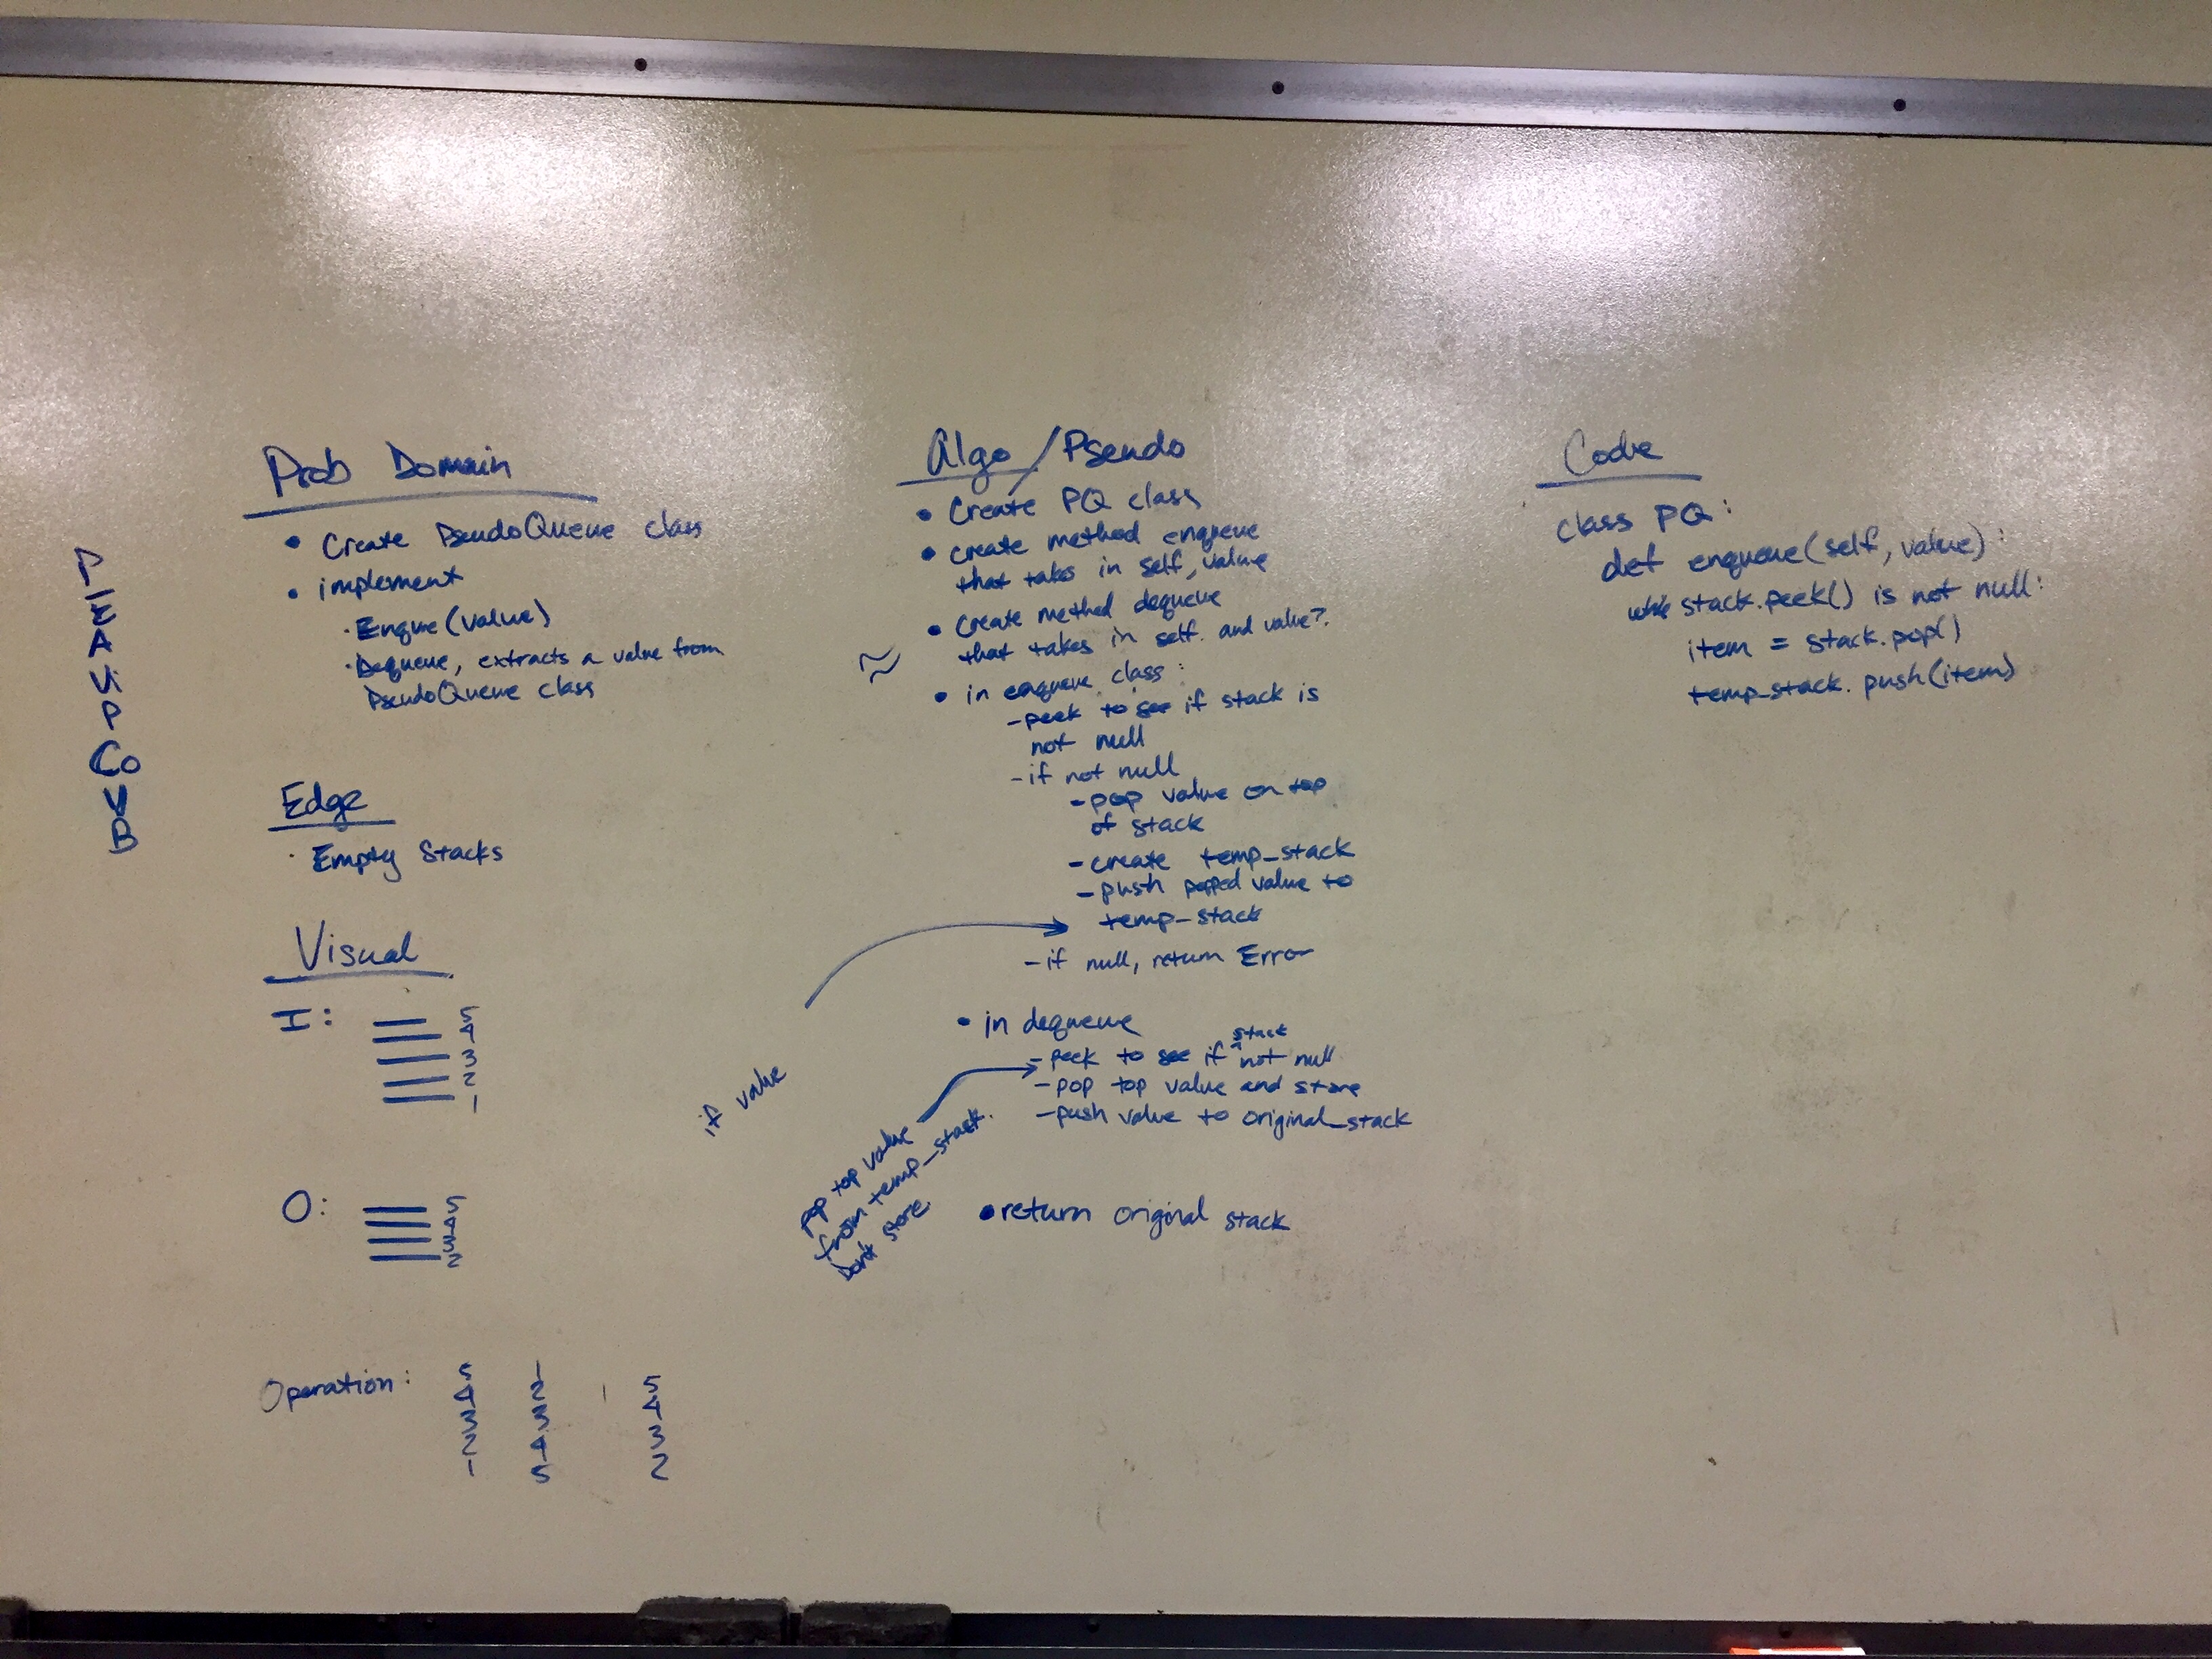 Prob Domain
• Create PseudoQueue class
• implement
· Enque(value)
· Dequeue, extracts a value from
PseudoQueue class
Edge
· Empty Stacks
Visual
I:
5
4
3
2
1
O:
5
4
3
2
Operation:
5 1 5
4 2 4
3 3 3
2 4 2
1 5
Algo/Pseudo
• Create PQ class
• create method enqueue
that takes in self, value
• Create method dequeue
that takes in self. and value?.
• in enqueue class:
- peek to see if stack is
not null
- if not null
- pop value on top
of stack
- create temp_stack
- push popped value to
temp_stack
- if null, return Error
if value
• in dequeue
- peek to see if stack not null
- pop top value and store
- push value to original_stack
pop top value
from temp_stack.
Don't store
• return original stack
Code
class PQ:
def enqueue(self, value):
while stack.peek() is not null:
item = stack.pop()
temp_stack.push(item)